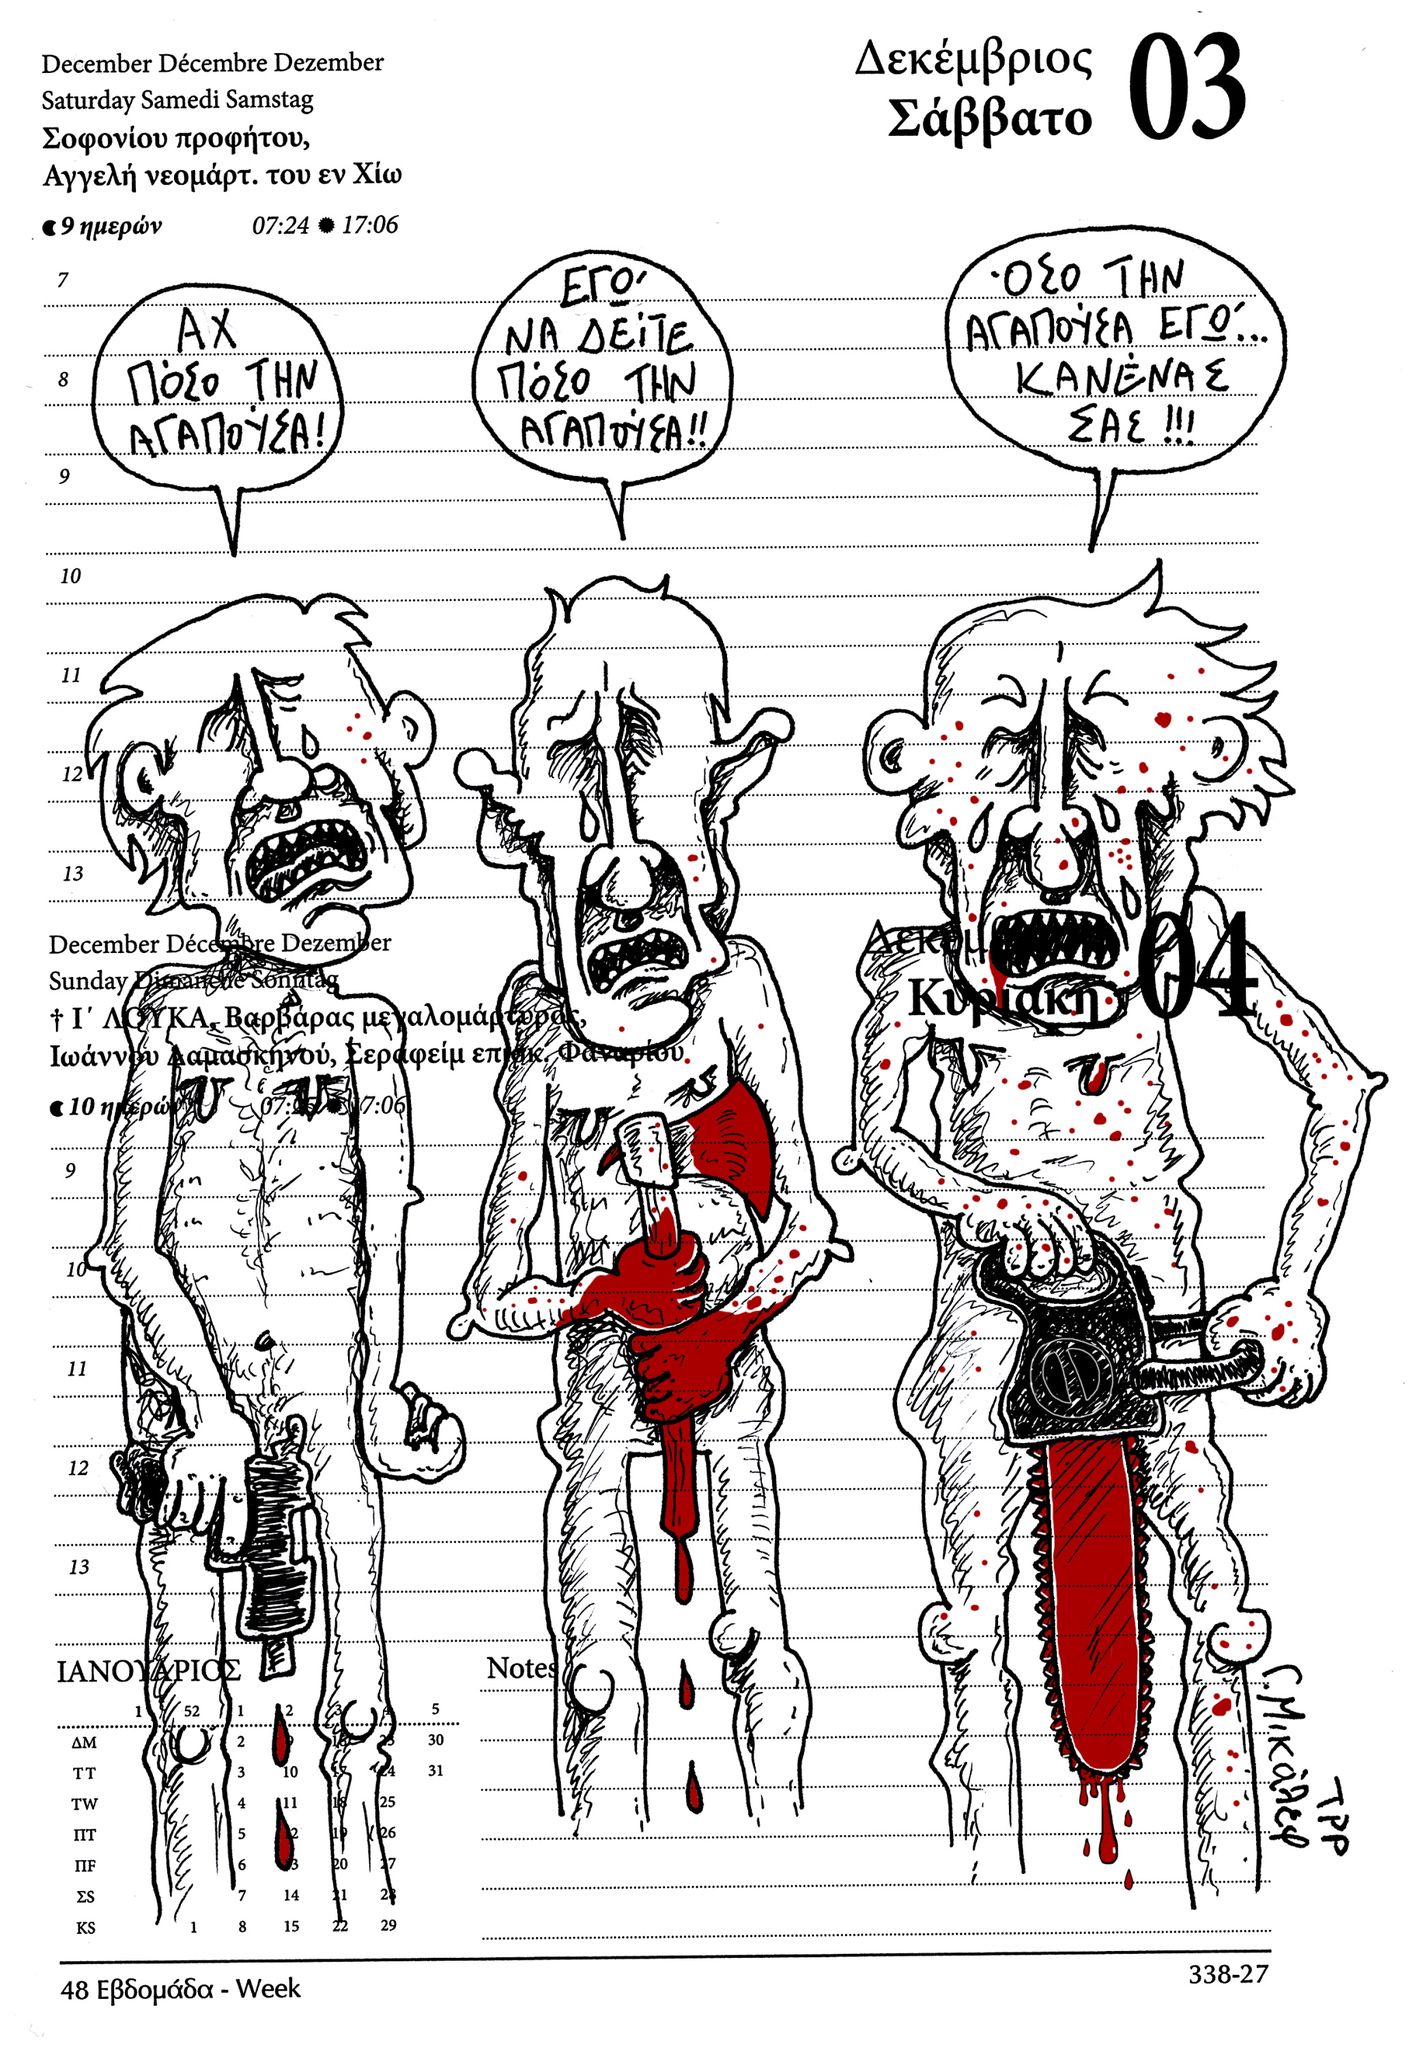 December Décembre Dezember
Saturday Samedi Samstag
Σοφονίου προφήτου,
Αγγελή νεομάρτ. του εν Χίω
9 ημερών 07:24 17:06
Δεκέμβριος
Σάββατο
03
7
8
9
10
11
12
13
ΑΧ
ΠΌΣΟ ΤΗΝ
ΑΓΑΠΟΎΣΑ!
ΕΓΏ
ΝΑ ΔΕΊΤΕ
ΠΌΣΟ ΤΗΝ
ΑΓΑΠΟΎΣΑ!!
ΌΣΟ ΤΗΝ
ΑΓΑΠΟΎΣΑ ΕΓΏ...
ΚΑΝΈΝΑΣ
ΣΑΣ!!!
December Décembre Dezember
Sunday Dimanche Sonntag
† Ι΄ ΛΟΥΚΑ, Βαρβάρας μεγαλομάρτυρος,
Ιωάννου Δαμασκηνού, Σεραφείμ επισκ. Φαναρίου
10 ημερών 17:06
Κυριακή
04
9
10
11
12
13
ΙΑΝΟΥΑΡΙΟΣ
1 52 1 2 3 4 5
ΔΜ 2 9 16 23 30
ΤΤ 3 10 17 24 31
TW 4 11 18 25
ΠΤ 5 12 19 26
ΠF 6 13 20 27
ΣS 7 14 21 28
ΚS 1 8 15 22 29
Notes
Γ. Μικάλεφ
ΤΡΡ
48 Εβδομάδα - Week
338-27